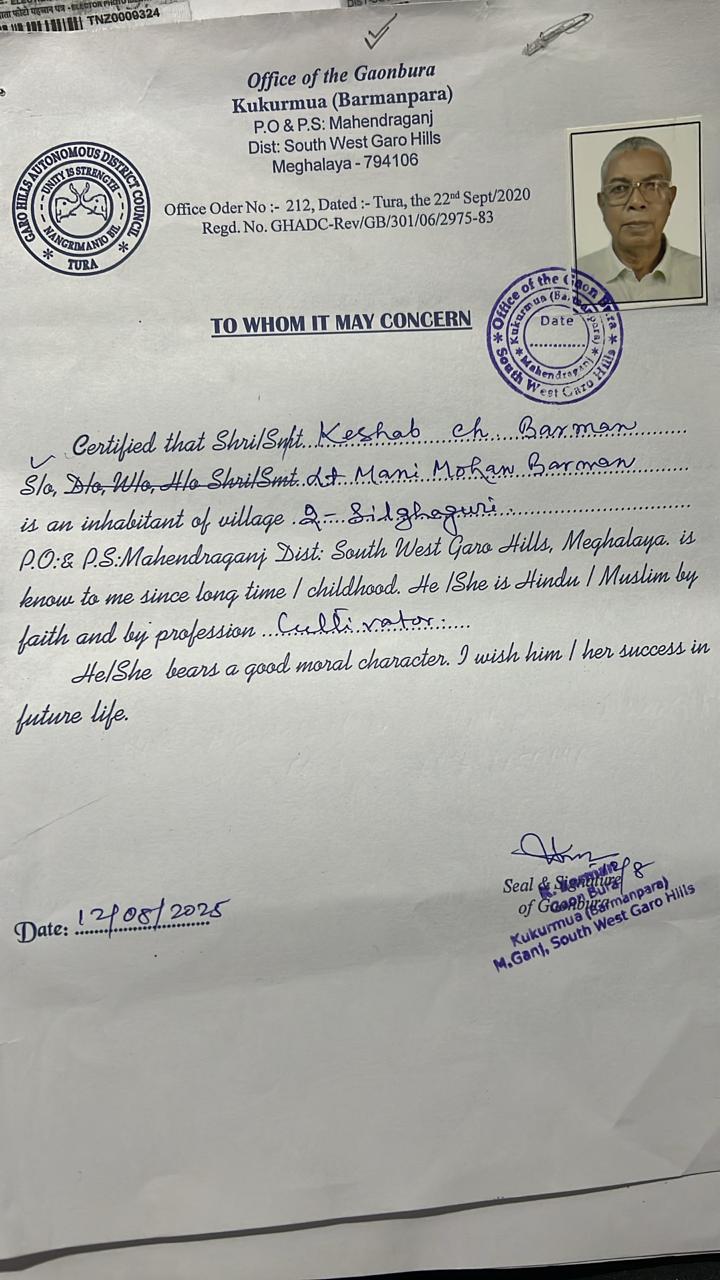 TNZ0009324
Office of the Gaonbura
Kukurmua (Barmanpara)
P.O & P.S: Mahendraganj
Dist: South West Garo Hills
Meghalaya - 794106
GARO HILLS AUTONOMOUS DISTRICT COUNCIL
UNITY IS STRENGTH
NANGRIMANIO BIL
* TURA *
Office Oder No :- 212, Dated :- Tura, the 22nd Sept/2020
Regd. No. GHADC-Rev/GB/301/06/2975-83
TO WHOM IT MAY CONCERN
* Office of the Gaon Bura *
Kukurmua (Barmanpara)
Date
* Mahendraganj *
South West Garo Hills
Certified that Shri/Smt. Keshab ch Barman
S/o, D/o, W/o, H/o Shri/Smt. Lt Mani Mohan Barman
is an inhabitant of village 2- Silghaguri
P.O:& P.S:Mahendraganj Dist: South West Garo Hills, Meghalaya. is
know to me since long time / childhood. He /She is Hindu / Muslim by
faith and by profession Cultivator
He/She bears a good moral character. I wish him / her success in
future life.
Date: 12/08/2025
Seal & Signature
of Gaonbura
Gaon Bura
Kukurmua (Barmanpara)
M.Ganj, South West Garo Hills